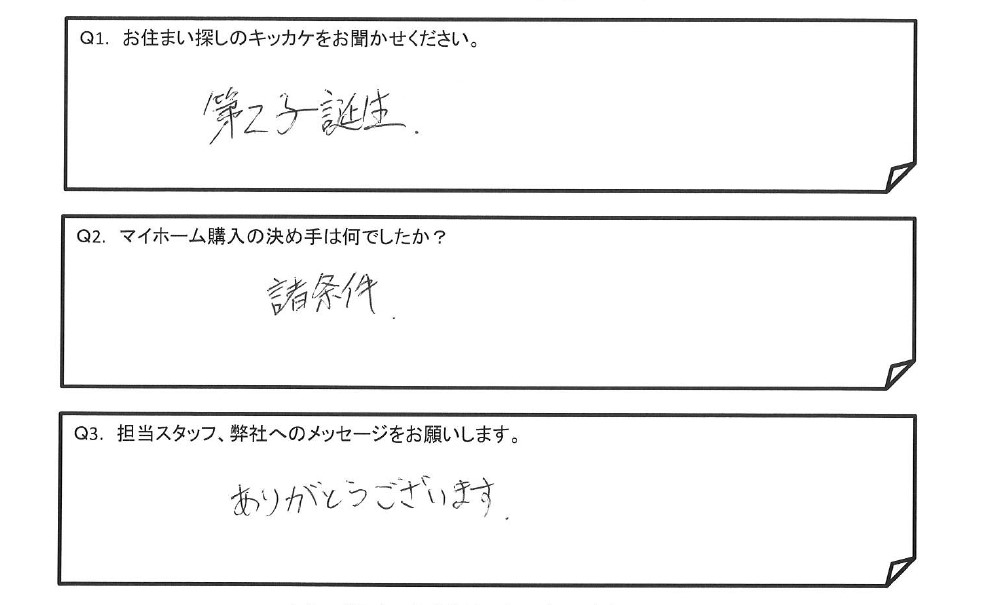 Q1. お住まい探しのキッカケをお聞かせください。
第2子誕生.
Q2. マイホーム購入の決め手は何でしたか？
諸条件.
Q3. 担当スタッフ、弊社へのメッセージをお願いします。
ありがとうございます.